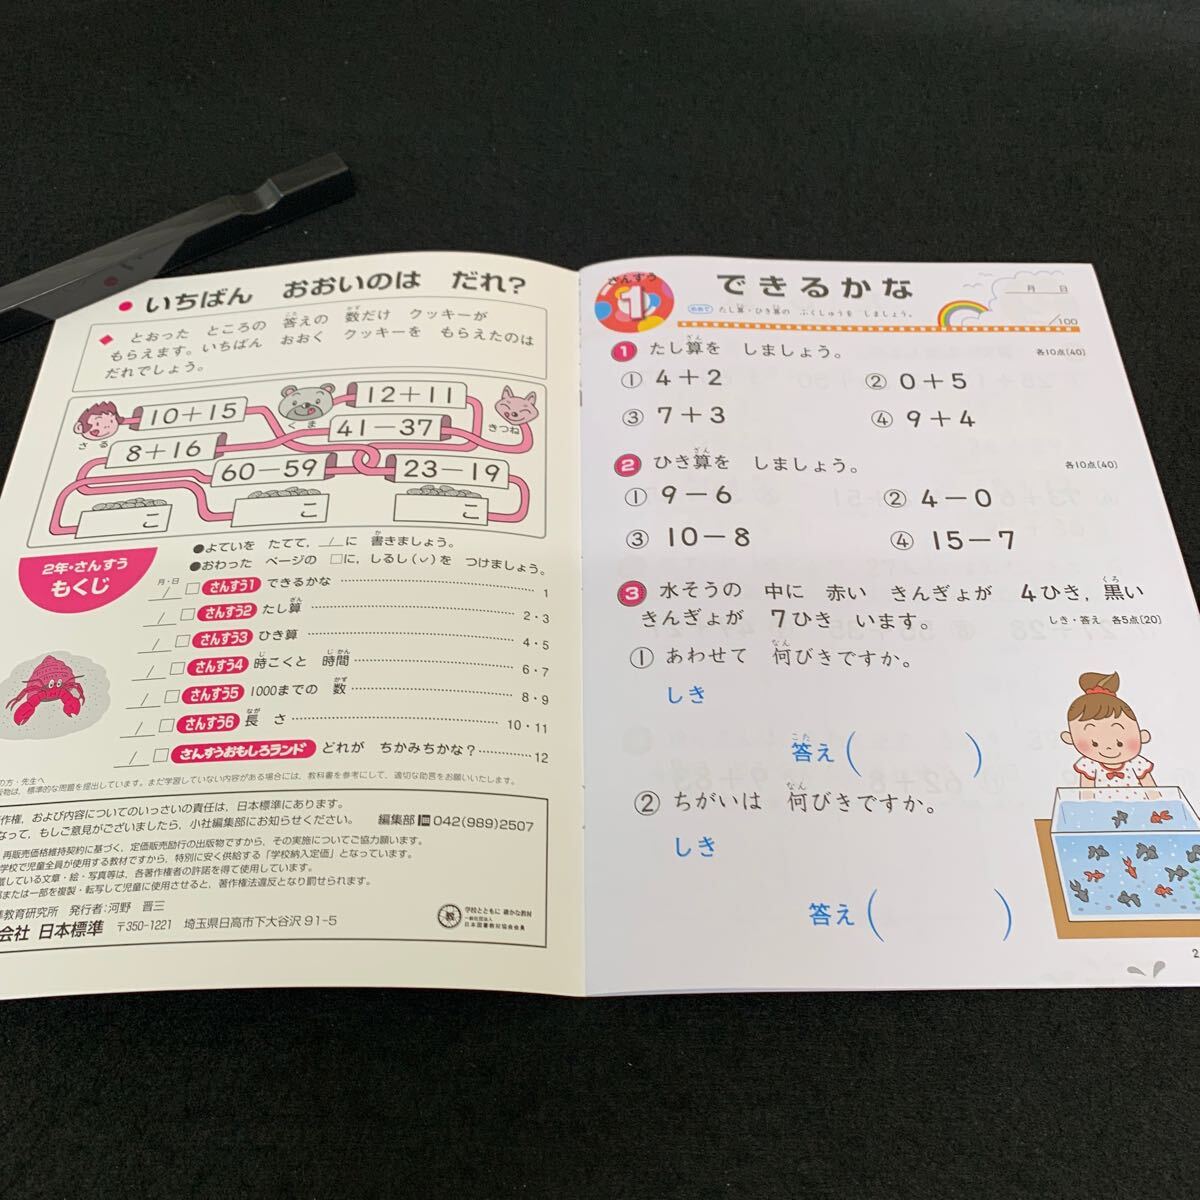 いちばん　おおいのは　だれ？
とおった　ところの　答えの　数だけ　クッキーが
もらえます。いちばん　おおく　クッキーを　もらえたのは
だれでしょう。
さる
10＋15
くま
12＋11
きつね
8＋16
41－37
60－59
23－19
こ
こ
こ
2年・さんすう
もくじ
●よていを　たてて，＿/＿に　書きましょう。
●おわった　ページの　□に，しるし(✓)を　つけましょう。
月・日
／ □ さんすう1 できるかな 1
／ □ さんすう2 たし算 2・3
／ □ さんすう3 ひき算 4・5
／ □ さんすう4 時こくと　時間 6・7
／ □ さんすう5 1000までの　数 8・9
／ □ さんすう6 長　さ 10・11
／ □ さんすうおもしろランド どれが　ちかみちかな？ 12
の方・先生へ
版物は，標準的な問題を提出しています。まだ学習していない内容がある場合には，教科書を参考にして，適切な助言をお願いいたします。
作権，および内容についてのいっさいの責任は，日本標準にあります。
なって，もしご意見がございましたら，小社編集部にお知らせください。　編集部 042(989)2507
再販売価格維持契約に基づく，定価販売励行の出版物ですから，その実施についてご協力願います。
学校で児童全員が使用する教材ですから，特別に安く供給する「学校納入定価」となっています。
している文章・絵・写真等は，各著作権者の許諾を得て使用しています。
または一部を複製・転写して児童に使用させると，著作権法違反となり罰せられます。
準教育研究所　発行者：河野　晋三
会社 日本標準　〒350-1221　埼玉県日高市下大谷沢 91-5
教
学校とともに 確かな教材
一般社団法人
日本図書教材協会会員
さんすう
1
できるかな
月　日
めあて たし算・ひき算の　ふくしゅうを　しましょう。
/100
1 たし算を　しましょう。 各10点〔40〕
① 4＋2　② 0＋5
③ 7＋3　④ 9＋4
2 ひき算を　しましょう。 各10点〔40〕
① 9－6　② 4－0
③ 10－8　④ 15－7
3 水そうの　中に　赤い　きんぎょが　4ひき，黒い
きんぎょが　7ひき　います。 しき・答え　各5点〔20〕
① あわせて　何びきですか。
しき
答え（　　　）
② ちがいは　何びきですか。
しき
答え（　　　）